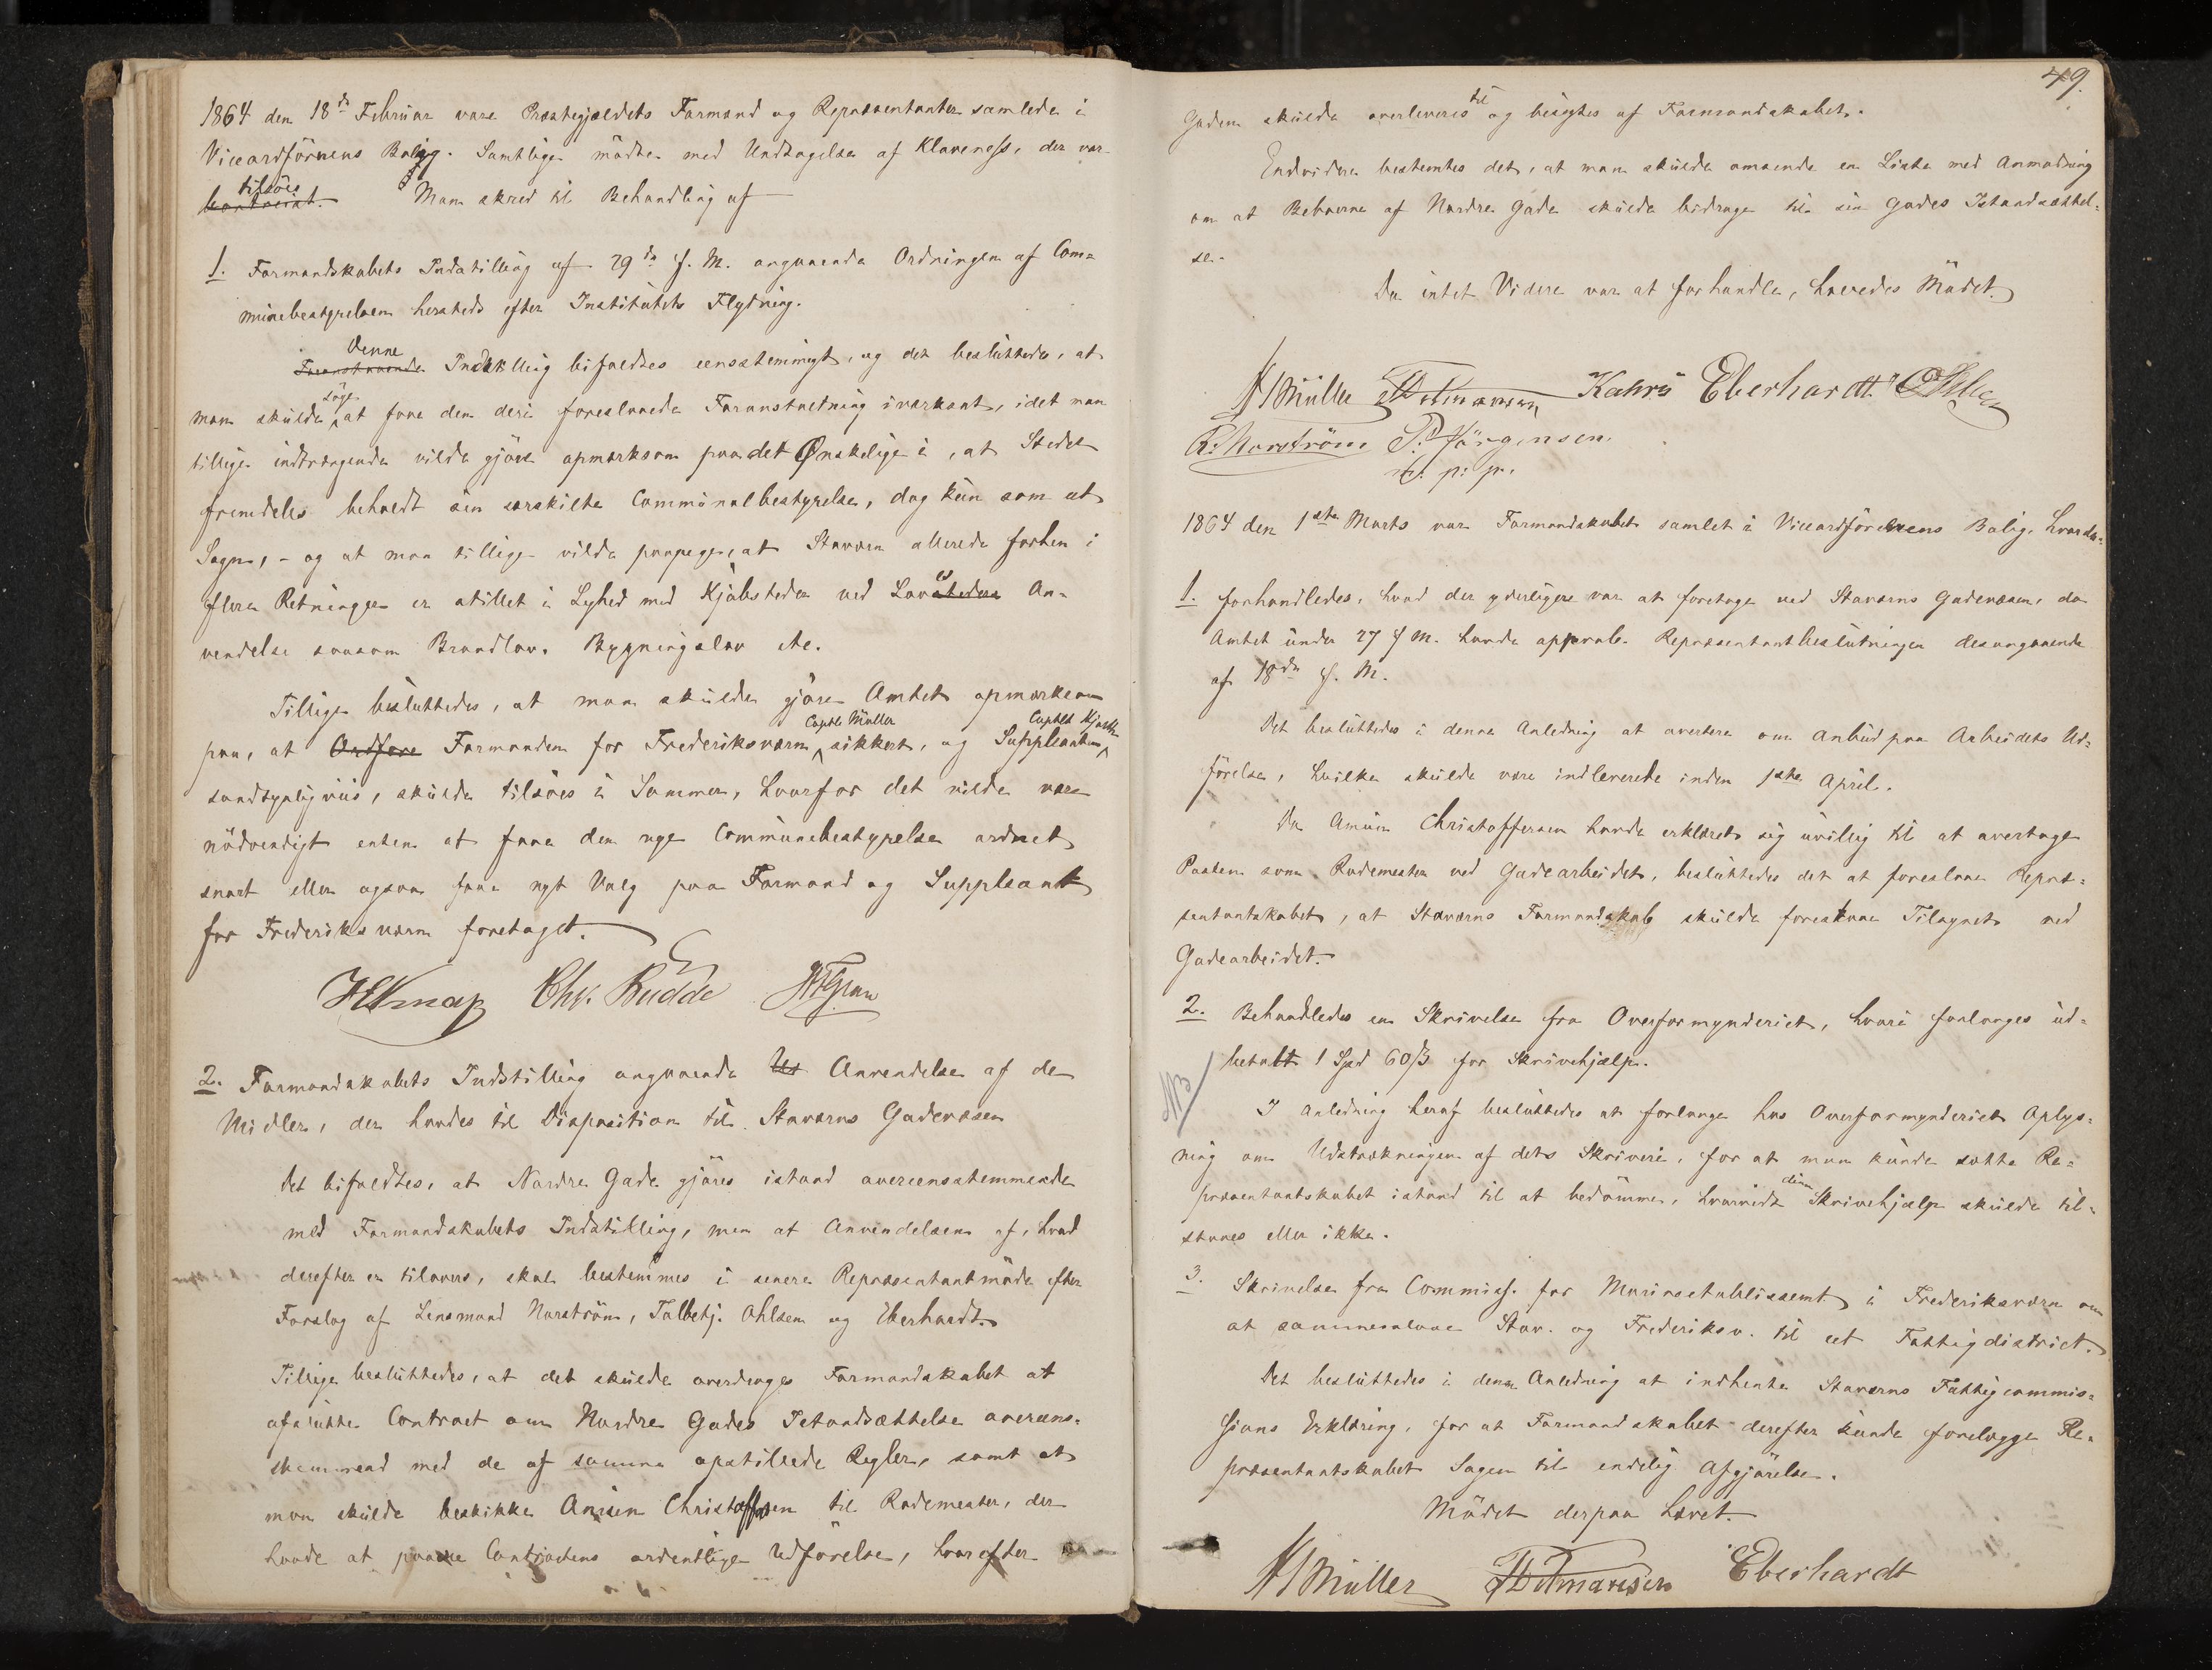 1864 den 18de Februar vare Præstegjældets Formænd og Repræsentanter samlede i
Viceordførerens Bolig. Samtlige mødte med Undtagelse af Klaveness, der var
tilsöes
bortreist. Man skred til Behandling af
1. Formandskabets Indstilling af 29de f. M. angaaende Ordningen af Com=
munebestyrelsen hersteds efter Institutets Flytning.
Denne
Indstilling bifaldtes eensstemmigt, og det besluttedes, at
söge
man skulde at faae den deri foreslaaede Foranstaltning iværksat, idet man
tillige indtrængende vilde gjøre opmærksom paa det Ønskelige i, at Stedet
fremdeles beholdt sin særskilte Communalbestyrelse, dog kun som et
Sogn, - og at man tillige vilde paapege, at Stavern allerede forhen i
flere Retninger er stillet i Lighed med Kjøbsteder ved Lov An=
vendelse saasom Brandlov, Bygningslov etc.
Tillige besluttedes, at man skulde gjøre Amtet opmærksom
Captl Müller Captlt
paa, at Ordføre Formanden for Frederiksværn sikkert, og Suppleanten
sandsynligviis, skulde tilsöes i Sommer, hvorfor det vilde være
nödvendigt enten at faae den nye Communebestyrelse ordnet
snart eller ogsaa faae nyt Valg paa Formand og Suppleant
for Frederiksværn foretaget.
HEKnap Chr. Budde
2. Formandskabets Indstilling angaaende Ud Anvendelse af de
Midler, der havdes til Disposition til Staværns Gadevæsen
Det bifaldtes, at Nordre Gade gjöres istand overeensstemmende
med Formandskabets Indstilling, men at Anvendelsen af, hvad
derefter er tilovers, skal bestemmes i senere Repræsentantmöde efter
Forslag af Lensmand Norström, Toldbetj. Ohlsen og Eberhardt.
Tillige besluttedes, at det skulde overdrages Formandskabet at
afslutte Contract om Nordre Gades Istandsættelse overeens=
stemmend med de af samme opstillede Regler, samt at
man skulde beskikke Christoffersen til Rodemester, der
havde at paasee Contractens ordentlige Udförelse, hvorefter
49.
til
Gaden skulde overleveres og besigtes af Formandskabet.
Endvidere bestemtes det, at man skulde omsende en Liste med Anmodning
om at Beboerne af Nordre Gade skulde bidrage til sin Gades Istandsættel=
se.
Da intet Videre var at forhandle, hævedes Mödet.
Müller Kahrs Eberhardt
Norström P. Jörgensen.
m. p: p.
1864 den 1ste Marts var Formandskabet samlet i Viceordförerens Bolig, hvorda=
1. forhandledes, hvad der yderligere var at foretage ved Staværns Gadevæsen, da
Amtet under 27 f M. havde approb. Repræsentantbeslutningen desangaaende
af 18de f. M.
Det besluttedes i denne Anledning at avertere om Anbud paa Arbeidets Ud=
förelse, hvilke skulde være indleverede inden 1ste April.
Da Christoffersen havde erklæret sig uvillig til at overtage
Posten som Rodemester ved Gadearbeidet, besluttedes det at foreslaae Repræ=
sentantskabet, at Staværns Formandskab skulde forestaae Tilsynet ved
Gadearbeidet.
2. Behandledes en Skrivelse fra Overformynderiet, hvori forlanges ud=
betalt 1 Spd 60 ß for Skrivehjælp.
I Anledning heraf besluttedes at forlange hos Overformynderiet Oplys=
ning om Udstrækningen af dets Skriveri, for at man kunde sætte Re=
denne
præsentantskabet istand til at bedömme, hvorvidt Skrivehjælp skulde til=
staaes eller ikke.
3. Skrivelse fra Commiss. for Marineetablissemt i Frederiksværn om
at sammenslaae Stav. og Frederiksv. til eet Fattigdistrict.
Det besluttedes i denne Anledning at indhente Staværns Fattigcommis=
sions Erklæring, for at Formandskabet derefter kunde forelægge Re=
præsentantskabet Sagen til endelig Afgjörelse.
Mödet derpaa hævet.
Müller Eberhardt